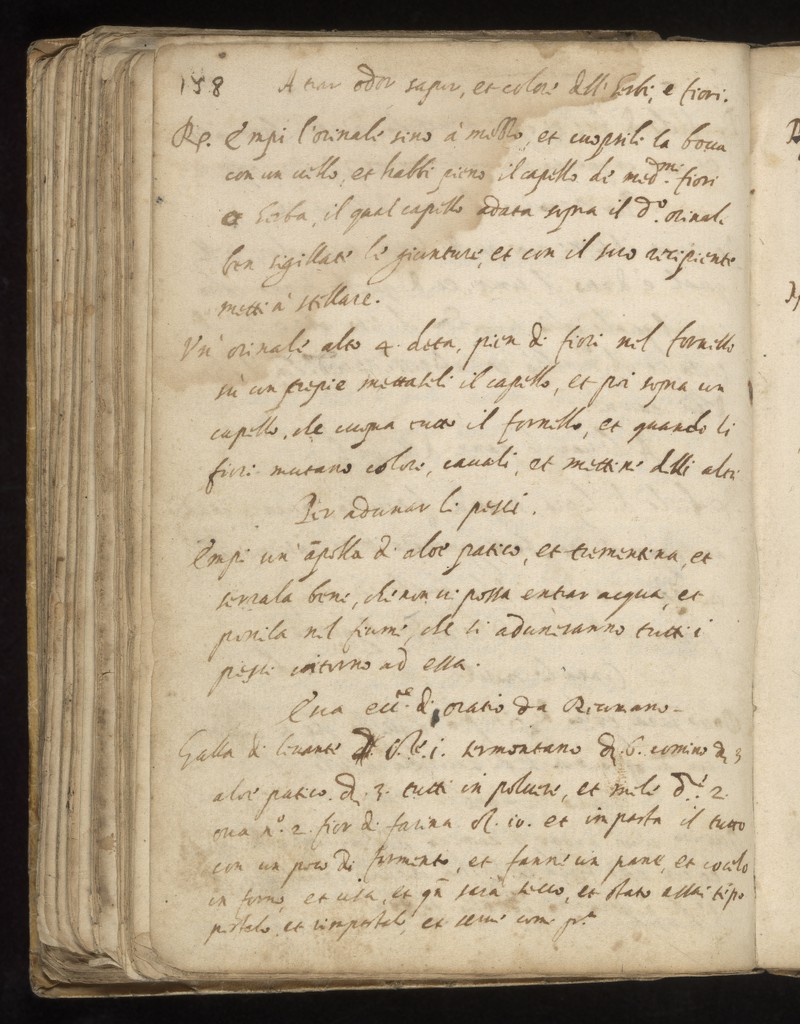 158 A trar odor sapor, et colore dell' Erbe, e fiori.
Rp. Empi l'orinale sino à mezzo, et cuoprili la bocca
con un vello, et habbi pieno il capello de med.mi fiori
o Erba, il qual capello adata sopra il d.o orinale
ben sigillate le giunture, et con il suo recipiente
metti à stillare.
Un' orinale alto 4. deta, pien di fiori nel fornello
sù un trepie mettaseli il capello, et poi sopra un
capello, che cuopra tutto il fornello, et quando li
fiori mutano colore, cavali, et mettine delli altri
Per adunar li pesci.
Empi un' āpolla di aloe patico, et trementina, et
serrala bene, che non vi possa entrar acqua, et
ponila nel fiume, che si aduneranno tutti i
pesci intorno ad essa.
Esca ecc.te di oratio da
Galla di levante 1. sermontano 6. comino 3
aloe patico 3. tutti in polvere, et mele 2.
ova n.o 2. fior di farina et impasta il tutto
con un poco di formento, et fanne un pane, et cocelo
in forno, et usa, et qn̄ sarà secco, et stato assai tēpo
pestalo, et rimpastalo, et serve come p.a